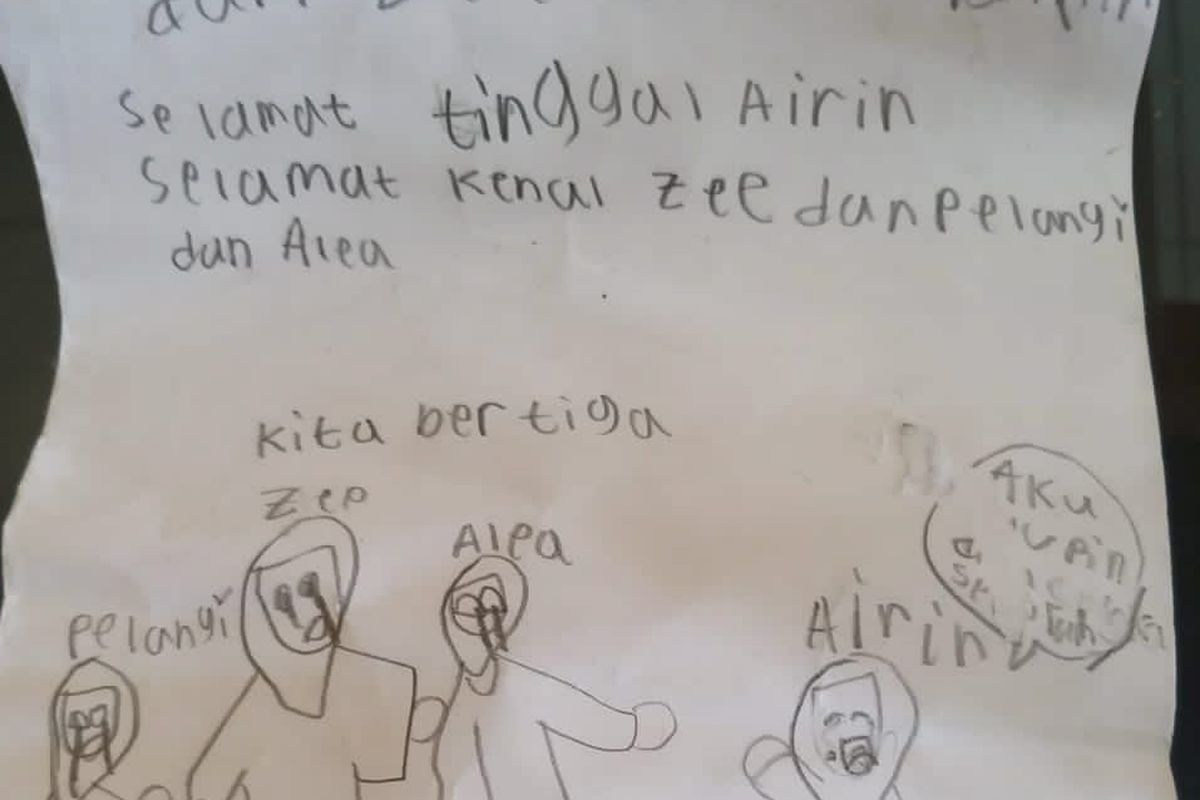 Selamat tinggal Airin
Selamat kenal Zee dan Pelangi
dan Alea
Kita bertiga
Zee
Alea
Pelangi
Airin
Aku